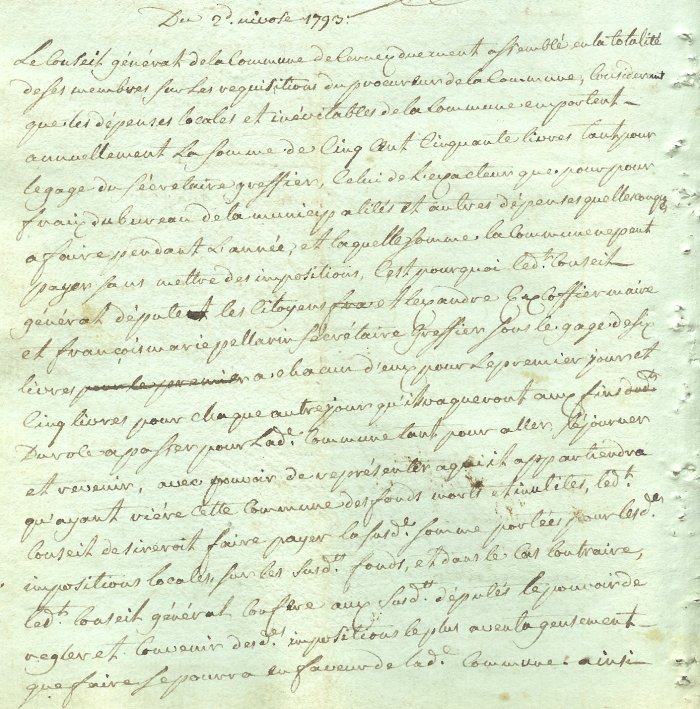 Du 2d. nivose 1793.
Le Conseil général de la Commune de Cernex duement assemblé en la totalité
de ses membres sur les requisitions du procureur de la Commune, Considerant
que les dépenses locales et inévitables de la Commune emportent
annuellement la somme de Cinq Cent Cinquante livres tant pour
le gage du Sécrétaire greffier, Celui de L'exacteur que pour pour
fraix du bureau de la municipalités et autres dépenses quelle
a faire pendant L'année, et laquelle somme la Commune ne peut
payer sans mettre des impositions, C'est pourquoi led.t Conseil
général députe les Citoyens et Alexandre Excoffier maire
et françois marie pellarin Sécrétaire Greffier sous le gage de six
livres pour le premier a chacun d'eux pour Le premier jours et
Cinq livres pour chaque autre jour qu'il vaqueront aux fins dud.
Du role a passer pour Lad.e Commune tant pour aller, Séjourner
et revenir, avec pouvoir de représenter a qui il appartiendra
qu'ayant riére Cette Commune des fonds morts et inutiles, led.t
Conseil desireroit faire payer la susd.e somme portées pour lesd.es
impositions locales sur les susd.ts fonds, et dans le Cas Contraire,
led.t Conseil général Confère aux susd.ts députés le pouvoir de
regler et Convenir desd.es impositions le plus aventageusement
que faire se pourra en faveur de lad.e Commune ainsi